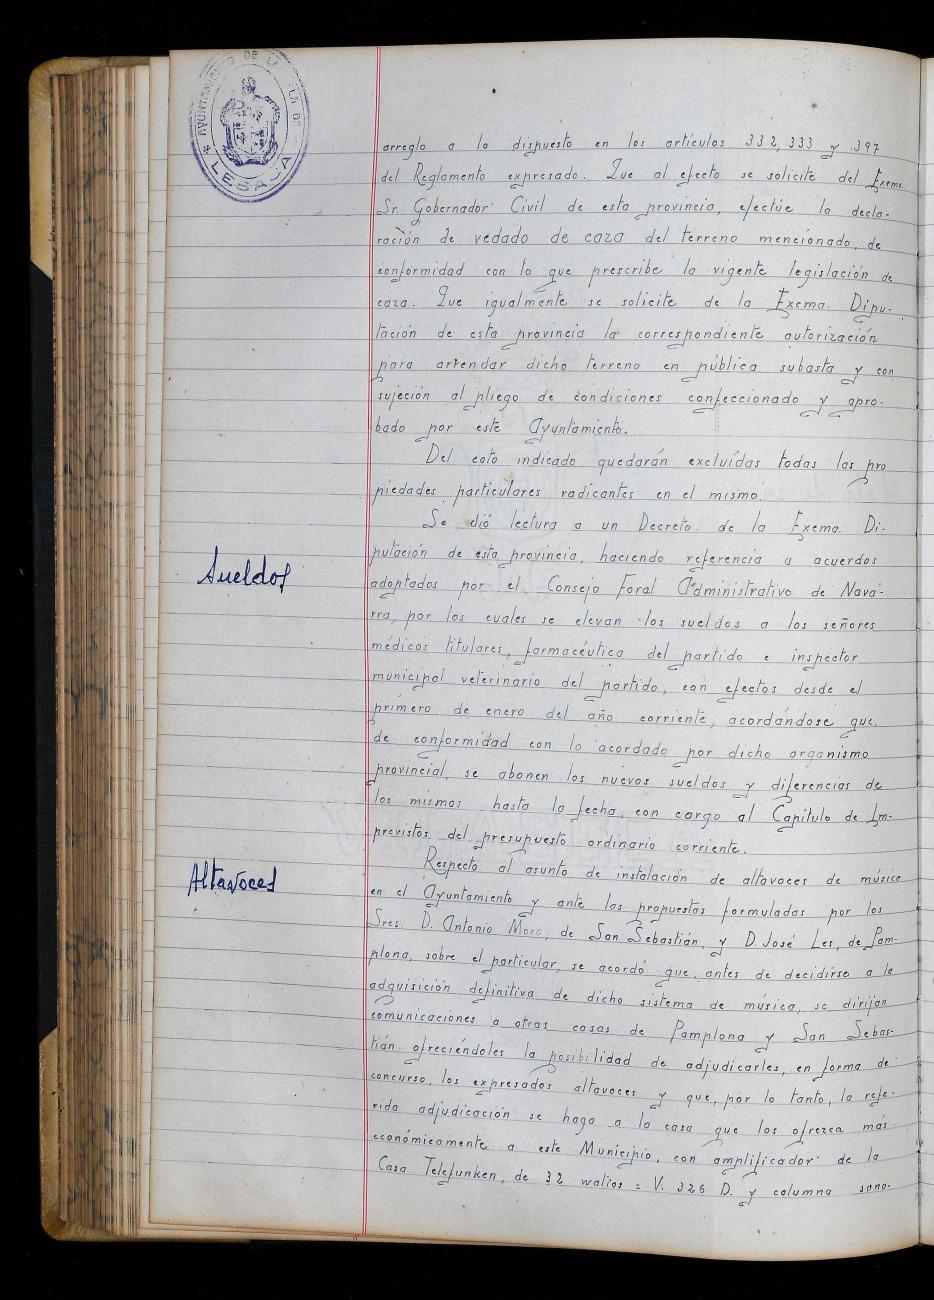 AYUNTAMIENTO DE LA VILLA DE
* LESACA *
arreglo a lo dispuesto en los artículos 332, 333 y 397
del Reglamento expresado. Que al efecto se solicite del Exemo.
Sr. Gobernador Civil de esta provincia, efectúe la decla-
ración de vedado de caza del terreno mencionado, de
conformidad con lo que prescribe la vigente legislación de
caza. Que igualmente se solicite de la Exema. Dipu-
tación de esta provincia la correspondiente autorización
para arrendar dicho terreno en pública subasta y con
sujeción al pliego de condiciones confeccionado y apro-
bado por este Ayuntamiento.
Del coto indicado quedarán excluídas todas las pro
piedades particulares radicantes en el mismo.
Se dió lectura a un Decreto de la Exema. Di-
Sueldos
putación de esta provincia, haciendo referencia a acuerdos
adoptados por el Consejo Foral Administrativo de Nava-
rra, por los cuales se elevan los sueldos a los señores
médicos titulares, farmacéutica del partido e inspector
municipal veterinario del partido, con efectos desde el
primero de enero del año corriente, acordándose que,
de conformidad con lo acordado por dicho organismo
provincial, se abonen los nuevos sueldos y diferencias de
los mismos hasta la fecha, con cargo al Capítulo de Im-
previstos del presupuesto ordinario corriente.
Altavoces
Respecto al asunto de instalación de altavoces de música
en el Ayuntamiento y ante las propuestas formuladas por los
Sres. D. Antonio Moro, de San Sebastián, y D. José Les, de Pam-
plona, sobre el particular, se acordó que, antes de decidirse a la
adquisición definitiva de dicho sistema de música, se dirijan
comunicaciones a otras casas de Pamplona y San Sebas-
tián ofreciéndoles la posibilidad de adjudicarles, en forma de
concurso, los expresados altavoces y que, por lo tanto, la refe-
rida adjudicación se haga a la casa que los ofrezca más
económicamente a este Municipio, con amplificador de la
Casa Telefunken, de 32 watios = V. 326 D. y columna sono-